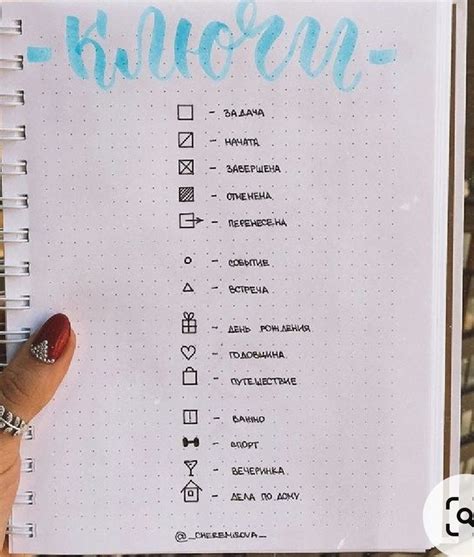 - Ключи -
- ЗАДАЧА
- НАЧАТА
- ЗАВЕРШЕНА
- ОТМЕНЕНА
- ПЕРЕНЕСЕНА
- СОБЫТИЕ
- ВСТРЕЧА
- ДЕНЬ РОЖДЕНИЯ
- ГОДОВЩИНА
- ПУТЕШЕСТВИЕ
- ВАЖНО
- СПОРТ
- ВЕЧЕРИНКА
- ДЕЛА ПО ДОМУ
@_CHEREMISOVA_